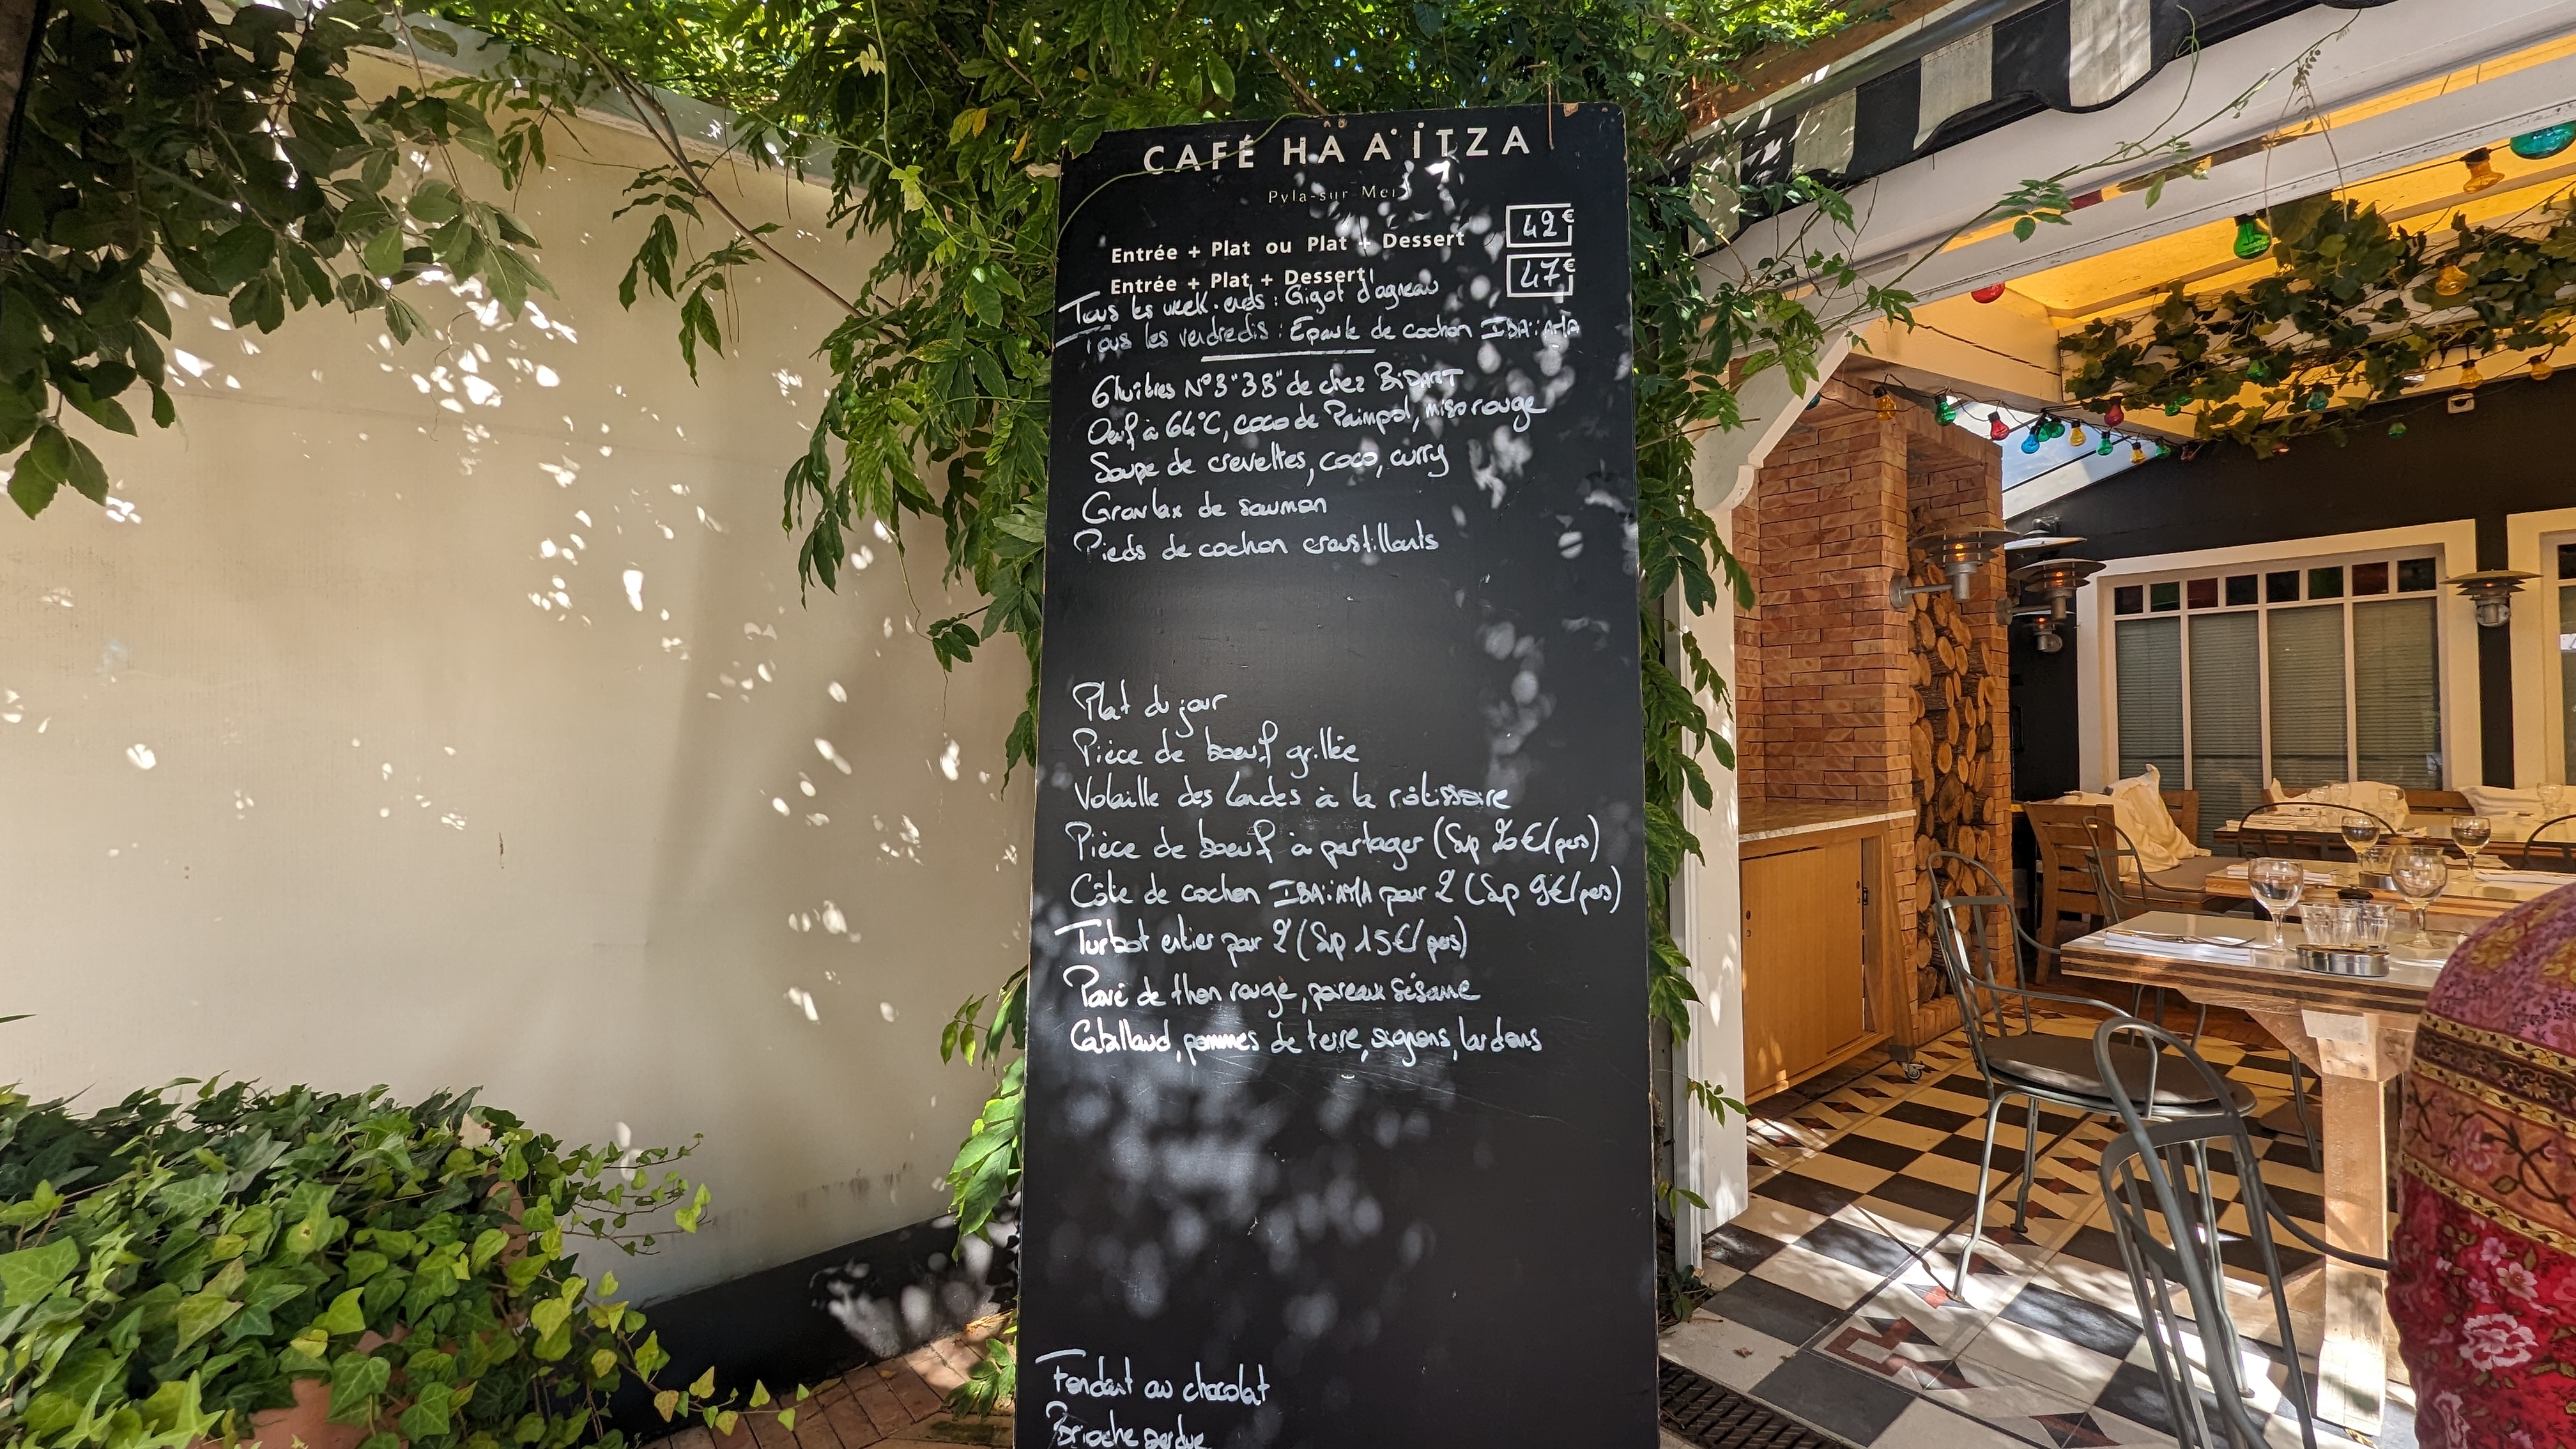 CAFÉ HAA'ÏTZA
Pyla-sur Mer
Entrée + Plat ou Plat + Dessert 42€
Entrée + Plat + Dessert 47€
Tous les week-ends : Gigot d'agneau
Tous les vendredis : Epaule de cochon IBAÏAMA
6 huîtres N°3 "38" de chez BiDART
Oeuf à 64°C, coco de Paimpol, miso rouge
Soupe de crevettes, coco, curry
Gravlax de saumon
Pieds de cochon croustillants
Plat du jour
Pièce de boeuf grillée
Volaille des Landes à la rôtissoire
Pièce de boeuf à partager (Sup €/pers)
Côte de cochon IBAÏAMA pour 2 (Sup 9€/pers)
Turbot entier pour 2 (Sup 15€/pers)
Pavé de thon rouge, poireaux sésame
Cabillaud, pommes de terre, oignons, lardons
Fondant au chocolat
Brioche perdue